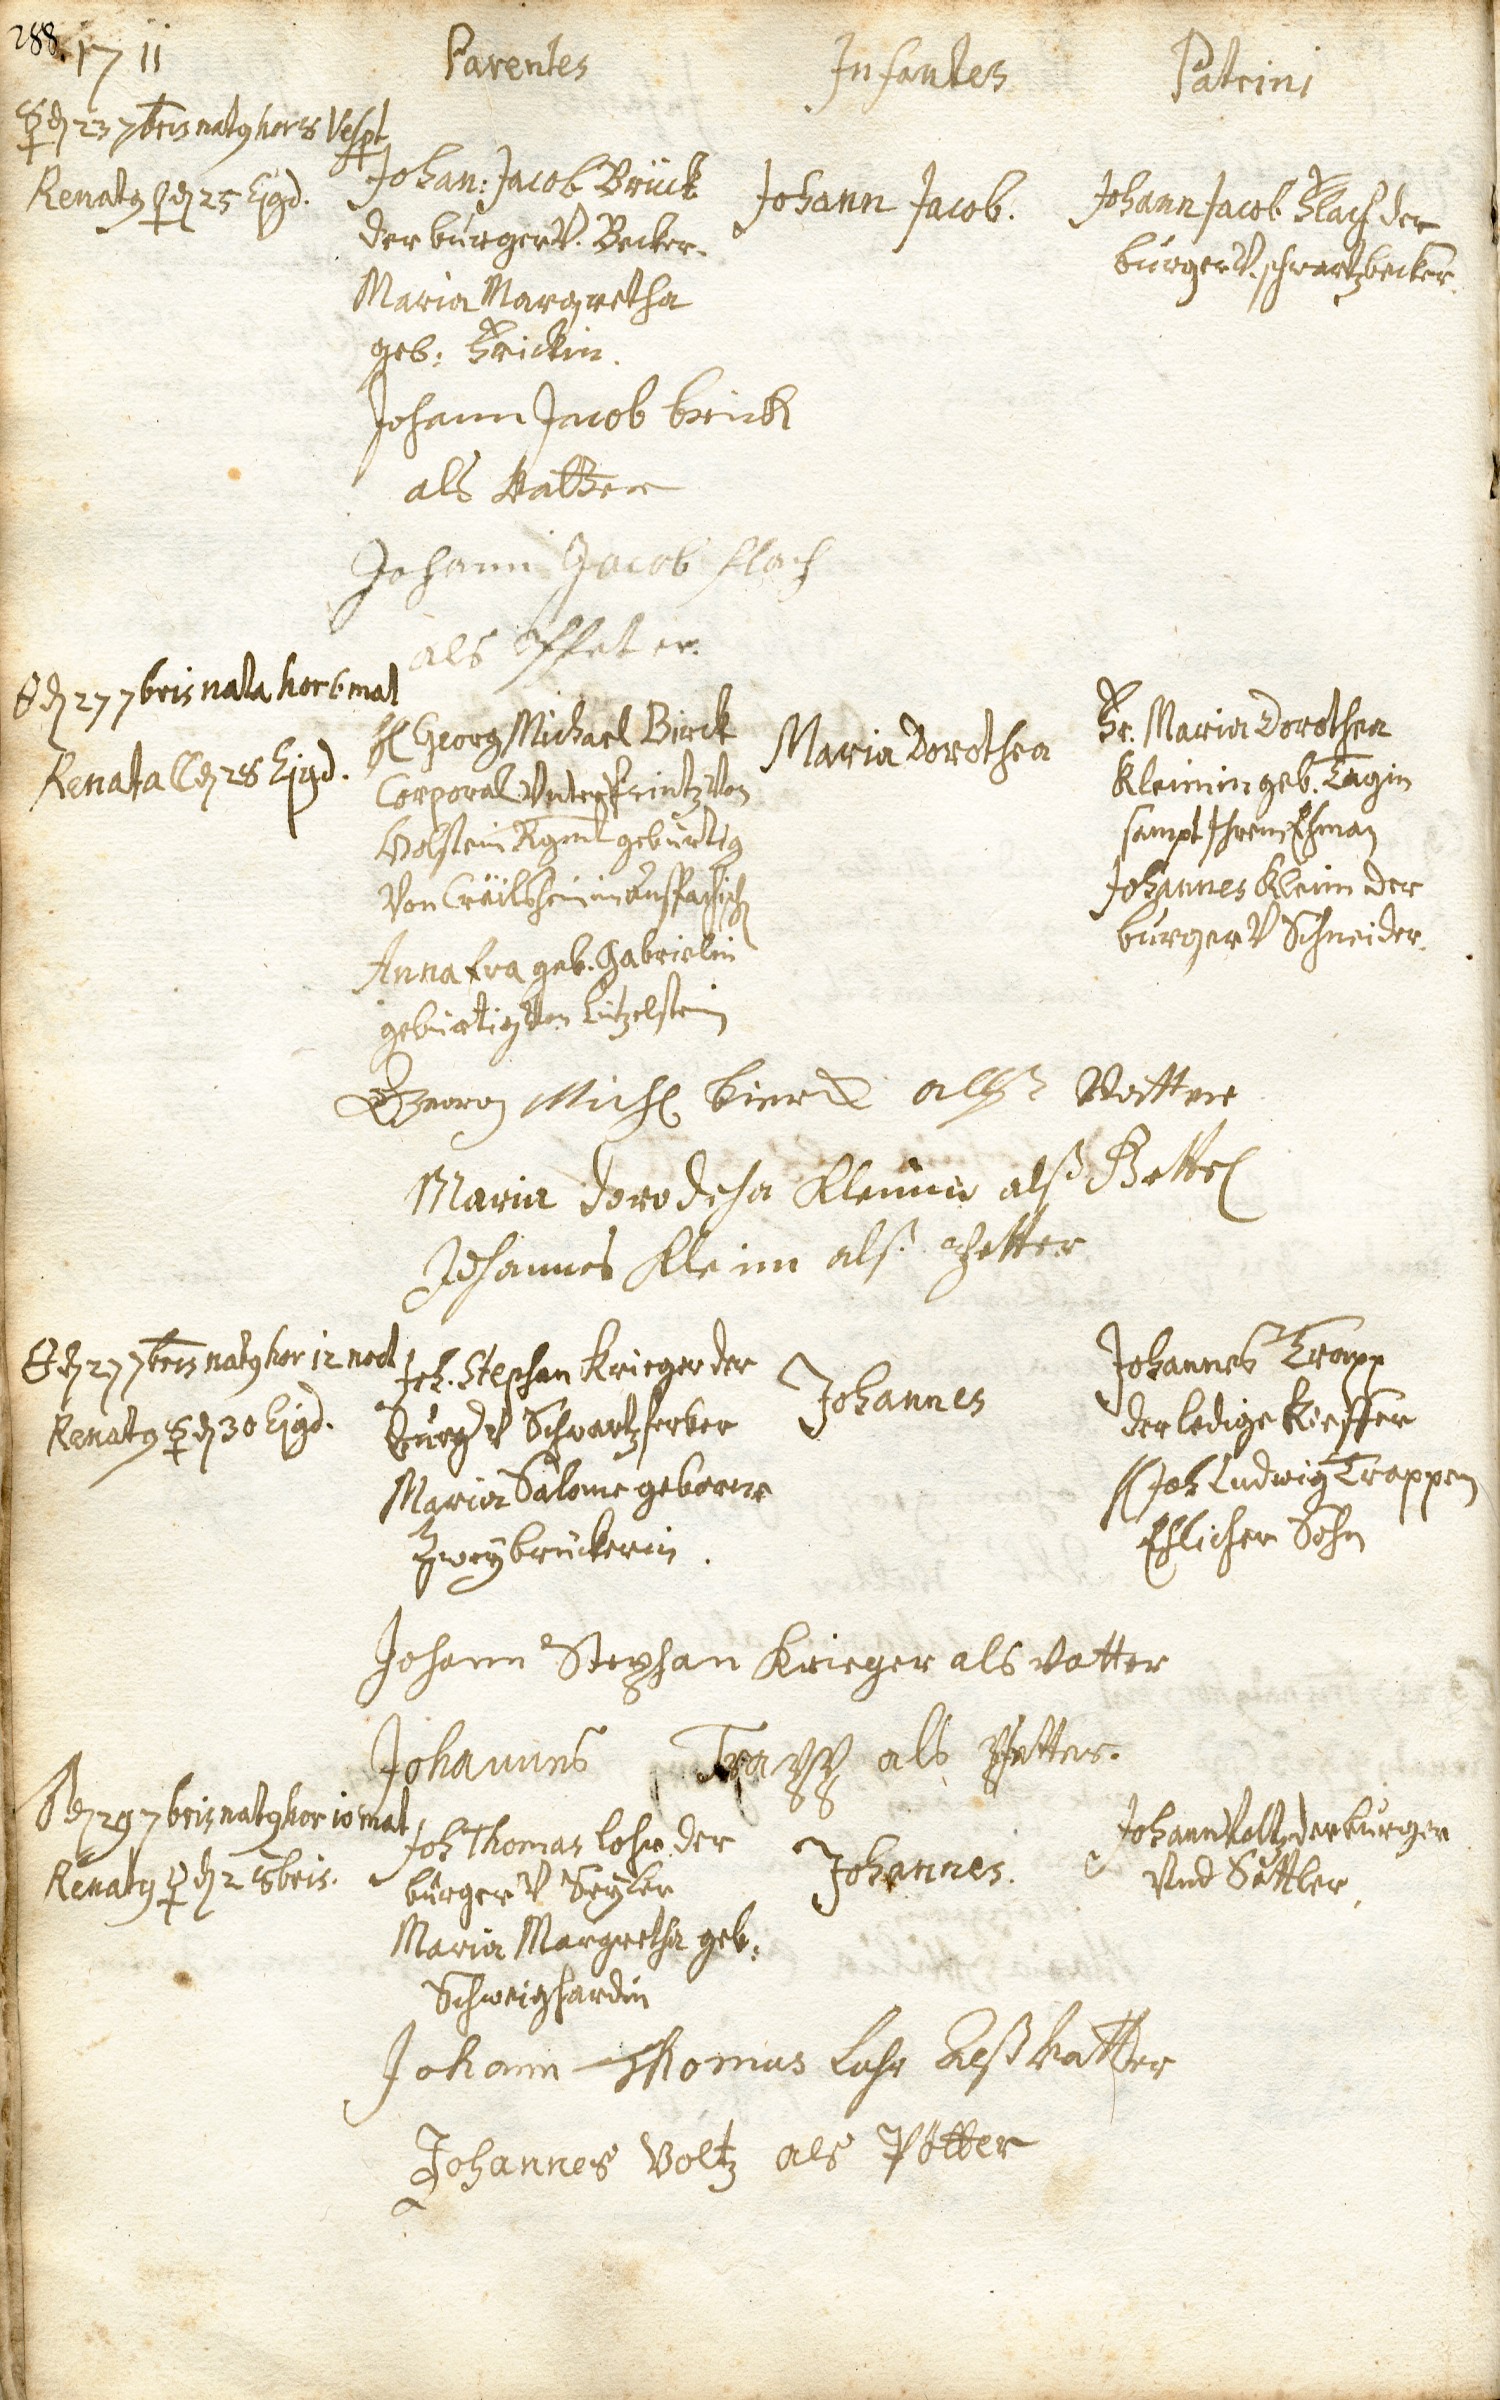 288.
1711
Parentes
Infantes
Patrini
☿ d 23 7bris naty hor 8 Vesp̄t
Renaty ♀ d 25 Ejgd.
Johan: Jacob Brück
der bürger V. Becker.
Maria Margretha
geb: Frickin.
Johann Jacob.
Johann Jacob Flach der
bürger V. schwartzbecker.
Johann Jacob brück
als Vatter
Johann Jacob flach
als Pfeter.
☉ d 27 7bris nata hor 6 mat
Renata ☾ d 28 Ejgd.
H Georg Michael Birck
Corporal Unter Printz Von
Holstein Rgmt gebürtig
Von Cräilsheim im
Anna Eva geb. Gabrielin
gebürtig Von Lützelstein
Maria Dorothea
Fr. Maria Dorothea
Kleinin geb.
sampt Ihrem Ehman
Johannes Klein der
bürger V Schneider.
Georg Mich birck alß Vatter
Maria dorodeha Kleinin alß Gettel
Johannes Klein alß Petter
☉ d 27 7bris naty hor 12 noct
Renaty ☿ d 30 Ejgd.
Joh. Stephan Krieger der
Burg V Schwartzferber
Maria Salome geborne
Zweybrückerin.
Johannes
Johannes Trapp
der ledige Kieffer
H Joh Ludwig Trappen
Ehlicher Sohn
Johann Stephan Krieger als vatter
Johannes Trapp als Pfetter.
♂ d 29 7bris naty hor 10 mat
Renaty ♀ d 2 8bris.
Joh Thomas Lohr der
bürger V Seyler
Maria Margretha geb:
Schweighardin
Johannes.
Johann Voltz der bürger
Und Sattler.
Johann Thomas Lohr Alß Vatter
Johannes Voltz als Pötter